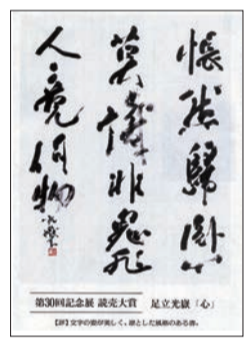 悵然歸臥心
莫 非鬼
人 竟何物
第30回記念展 読売大賞 足立光嶽「心」
【評】文字の姿が美しく、凛とした風格のある書。